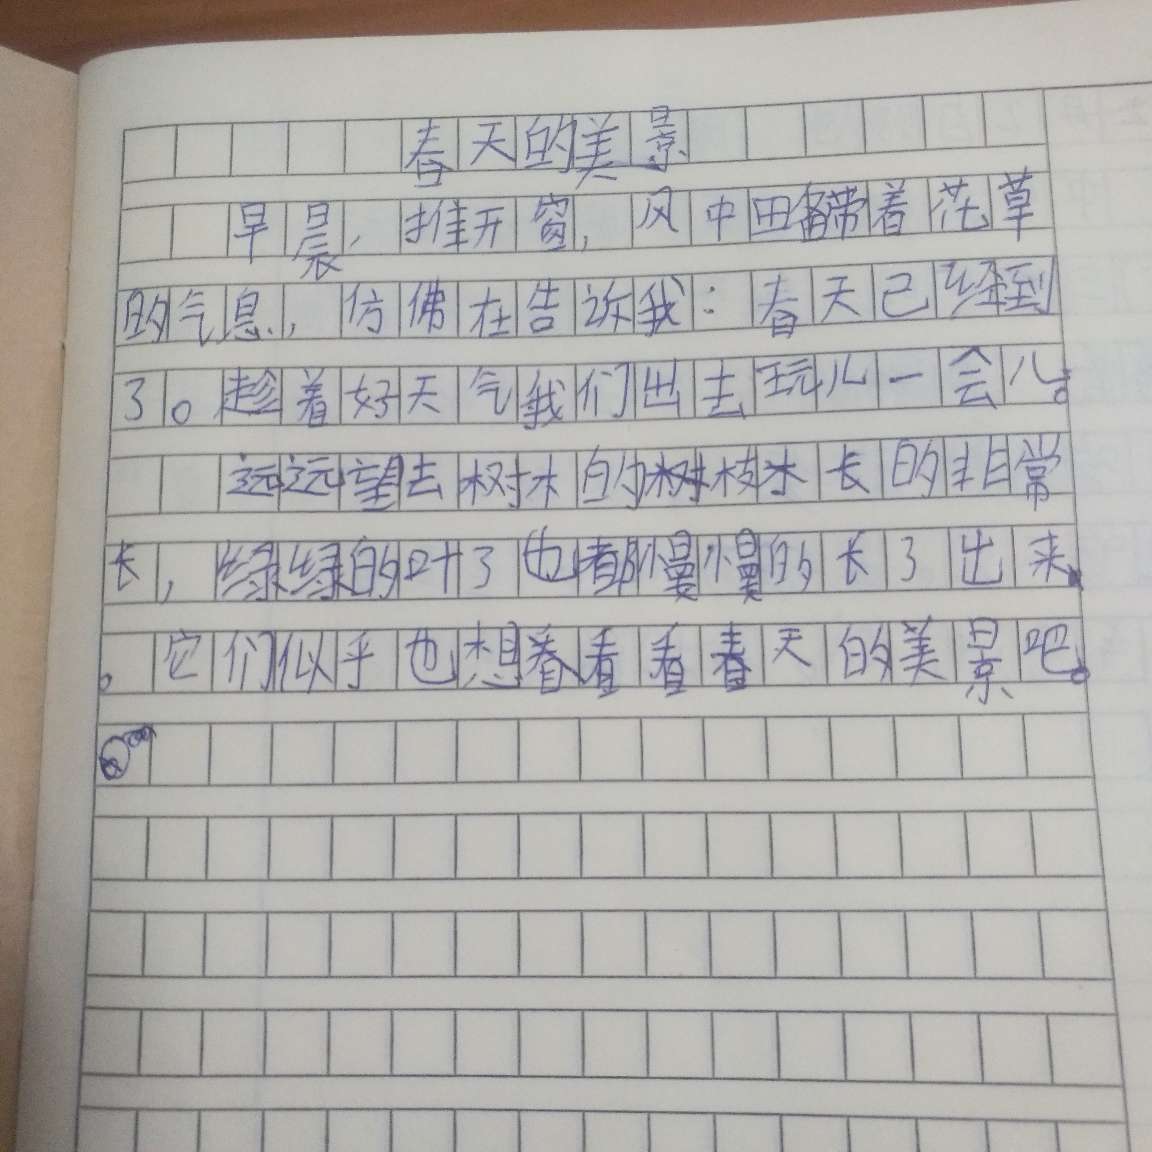 春天的美景
早晨,推开窗,风中略带着花草
的气息,仿佛在告诉我:春天已经到
了。趁着好天气我们出去玩儿一会儿。
远远望去树木的树枝长的非常
长,绿绿的叶子也都慢慢的长了出来
。它们似乎也想看看春天的美景吧。